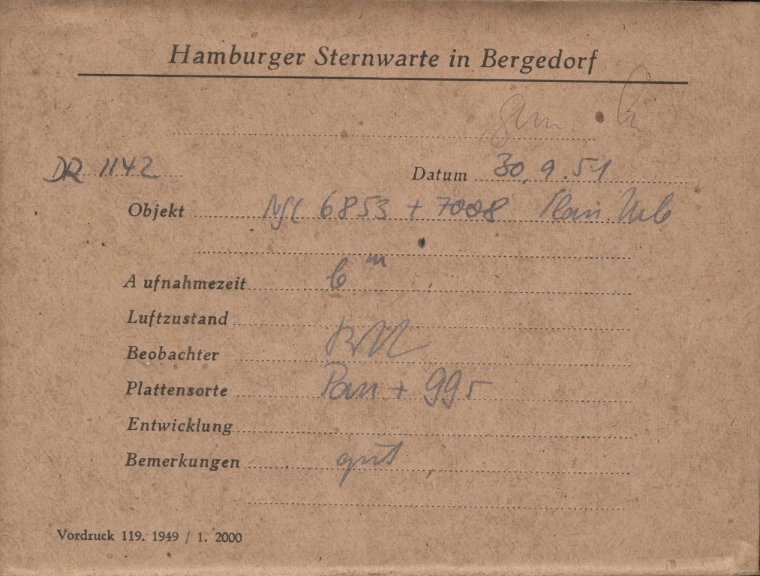 Hamburger Sternwarte in Bergedorf
DR 1142
Datum 30.9.51
Objekt NGC 6853 + 7008 Plan. Neb
Aufnahmezeit 6 m
Luftzustand
Beobachter
Plattensorte Pan +
Entwicklung
Bemerkungen gut
Vordruck 119. 1949 / 1. 2000